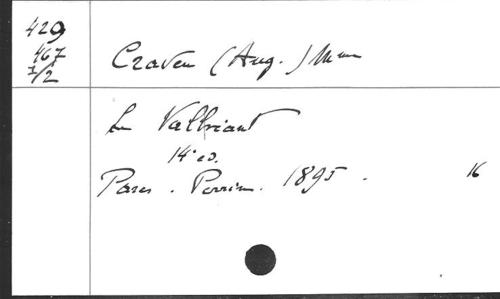 429
467
1/2
Craven (Aug.) Mme
Le Valbriant
14e ed.
Paris. Perrin. 1895.
16